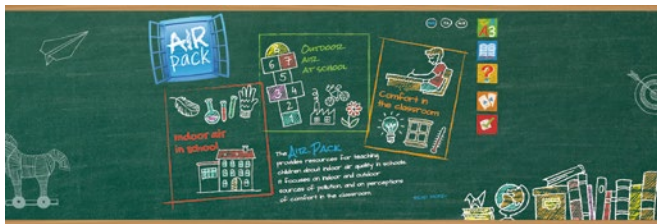 AIR
pack
6 7
5
3 4
2
1
OUTDOOR
AIR
AT SCHOOL
Comfort in
the classroom
Indoor air
in school
The AIR PACK
provides resources for teaching
children about indoor air quality in schools.
It focuses on indoor and outdoor
sources of pollution, and on perceptions
of comfort in the classroom.
READ MORE